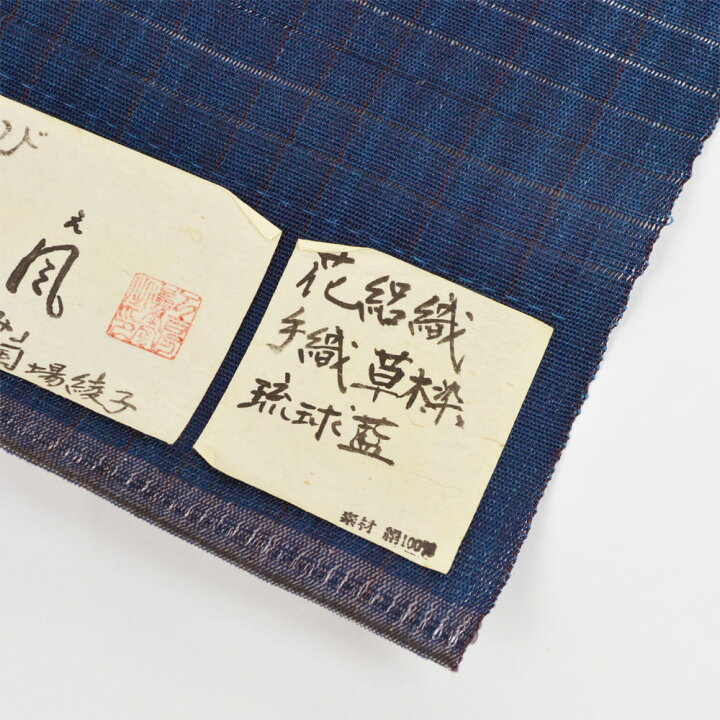 び
え
風
場綾子
花絽織
手織 草木染
琉球藍
素材 絹100%